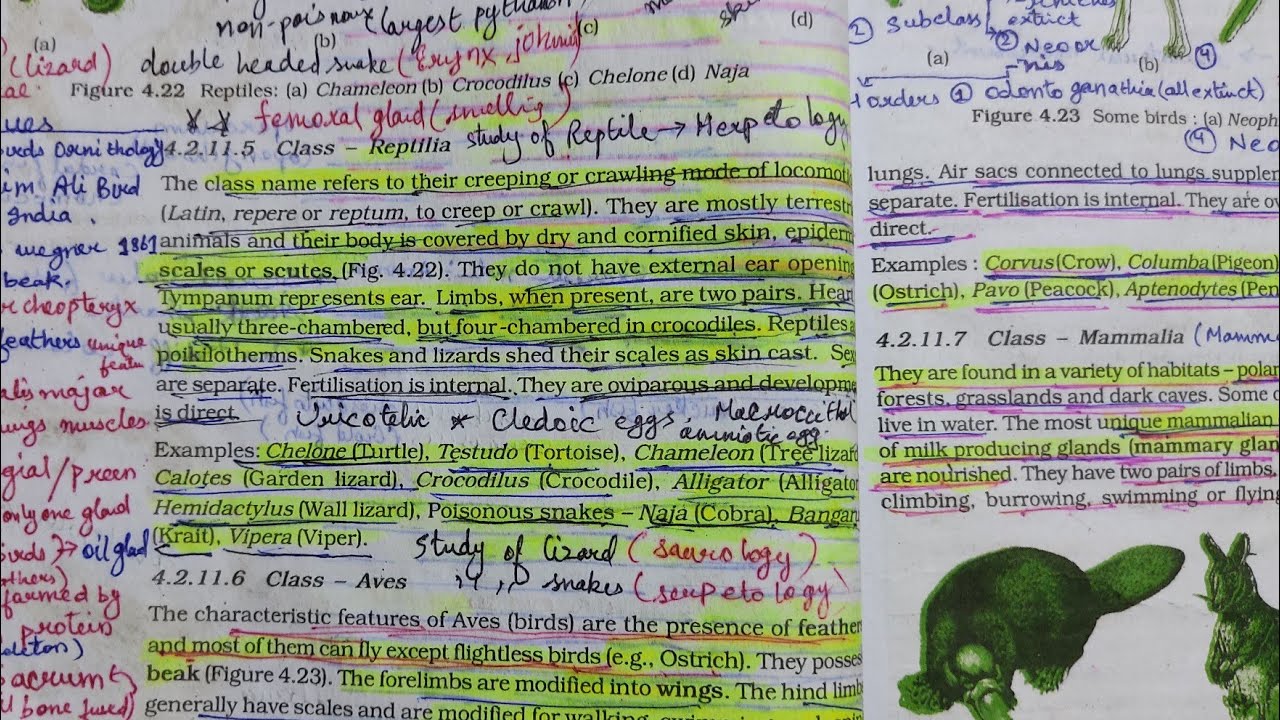 non-poisnous (largest python
(a)
(b)
(c)
(d)
(lizard) double headed snake (Erynx johnii)
Figure 4.22 Reptiles: (a) Chameleon (b) Crocodilus (c) Chelone (d) Naja
femoral glad (smellig)
study of Reptile → Herpetology
4.2.11.5 Class – Reptilia
The class name refers to their creeping or crawling mode of locomoti
(Latin, repere or reptum, to creep or crawl). They are mostly terrestr
animals and their body is covered by dry and cornified skin, epiderm
scales or scutes (Fig. 4.22). They do not have external ear opening
Tympanum represents ear. Limbs, when present, are two pairs. Hear
usually three-chambered, but four-chambered in crocodiles. Reptiles a
poikilotherms. Snakes and lizards shed their scales as skin cast. Sex
are separate. Fertilisation is internal. They are oviparous and developme
is direct.
Uricotelic * Cledoic eggs
amniotic egg.
Examples: Chelone (Turtle), Testudo (Tortoise), Chameleon (Tree lizard
Calotes (Garden lizard), Crocodilus (Crocodile), Alligator (Alligator
Hemidactylus (Wall lizard), Poisonous snakes – Naja (Cobra), Bangaru
(Krait), Vipera (Viper).
Study of lizard (saurology)
snakes (serpetology)
4.2.11.6 Class – Aves
The characteristic features of Aves (birds) are the presence of feather
and most of them can fly except flightless birds (e.g., Ostrich). They posses
beak (Figure 4.23). The forelimbs are modified into wings. The hind limb
generally have scales and are modified for walking,
ues
birds Ornithology
im Ali Bird
India.
wegner 1861
beak.
cheopteryx
feathers unique
featu
alis major
ungs muscles
gial/preen
only one glad
birds } → oil glad
others)
farmed by
protein
eleton)
acrum
bone fused)
② Subclass
extict
② Neor
nis
④
(a)
(b)
orders ① odonto ganathia (all extinct)
Figure 4.23 Some birds : (a) Neoph
④ Neo
lungs. Air sacs connected to lungs supplem
separate. Fertilisation is internal. They are ov
direct.
Examples : Corvus (Crow), Columba (Pigeon)
(Ostrich), Pavo (Peacock), Aptenodytes (Pen
4.2.11.7 Class – Mammalia (Mamm
They are found in a variety of habitats – polar
forests, grasslands and dark caves. Some o
live in water. The most unique mammalian
of milk producing glands (mammary glan
are nourished. They have two pairs of limbs,
climbing, burrowing, swimming or flying